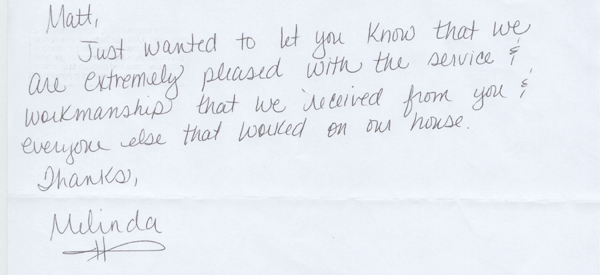 Matt,
Just wanted to let you know that we
are extremely pleased with the service &
workmanship that we received from you &
everyone else that worked on our house.
Thanks,
Melinda